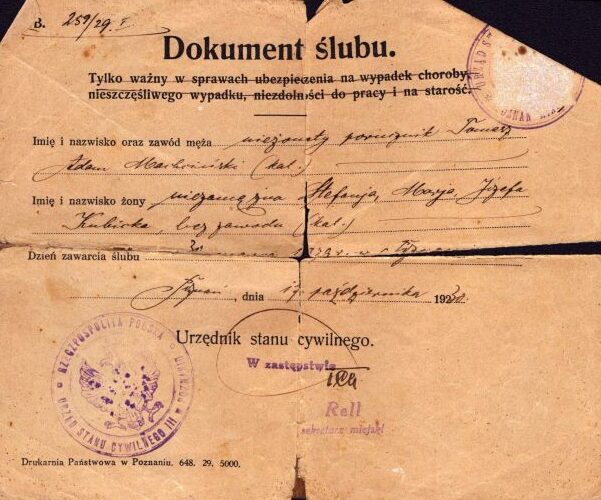 B. 259/29.
Dokument ślubu.
Tylko ważny w sprawach ubezpieczenia na wypadek choroby,
nieszczęśliwego wypadku, niezdolności do pracy i na starość.
Imię i nazwisko oraz zawód męża nieżonaty porucznik Tomasz
Adam (kat.)
Imię i nazwisko żony niezamężna Stefanja Marja Józefa
Kubicka, bez zawodu (kat.)
Dzień zawarcia ślubu
Poznań, dnia 17 października 192
Urzędnik stanu cywilnego.
W zastępstwie
Rell
sekretarz miejski
RZECZPOSPOLITA POLSKA
URZĄD STANU CYWILNEGO III
Drukarnia Państwowa w Poznaniu. 648. 29. 5000.